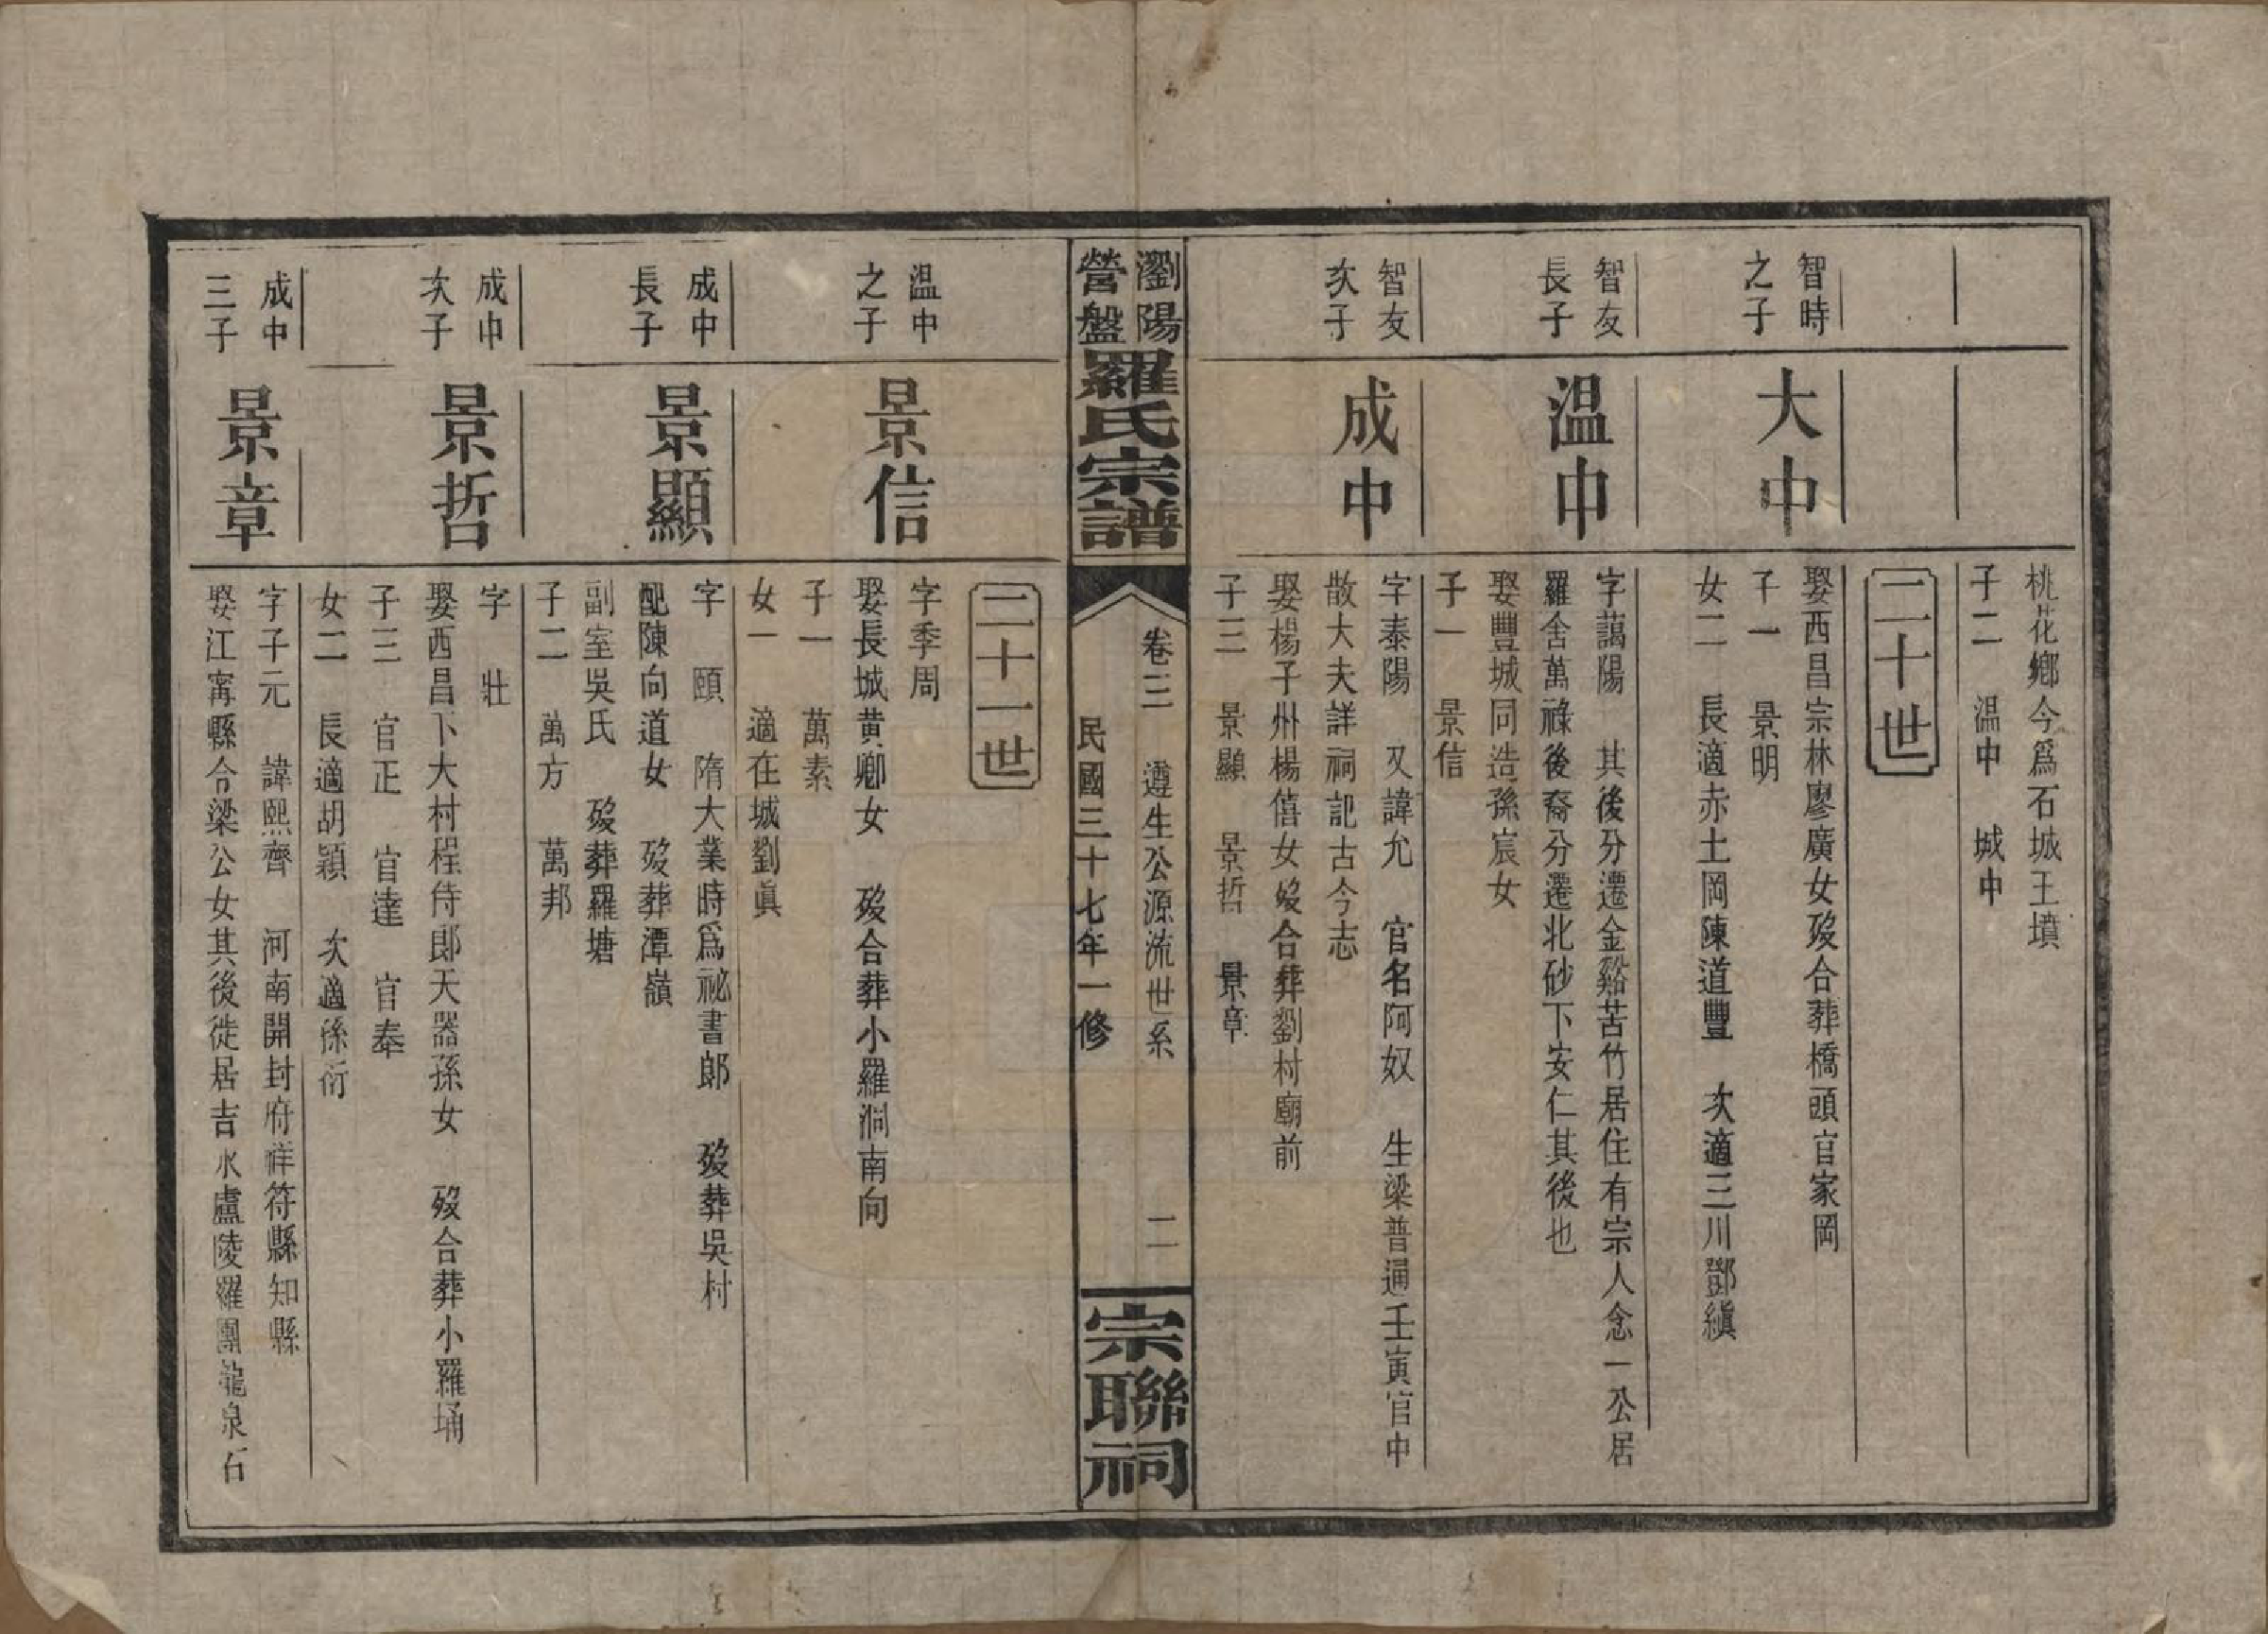 桃花鄉今爲石城王墳
子二　温中　城中
二十世
智時
之子
大中
娶西昌宗林廖廣女歿合葬橋頭官家岡
子一　景明
女二　長適赤土岡陳道豐　次適三川鄧縝
智友
長子
温中
字藹陽　其後分遷金谿苦竹居住有宗人念一公居
羅舍萬祿後裔分遷北砂下安仁其後也
娶豐城同造孫宸女
子一　景信
智友
次子
成中
字泰陽　又諱允　官名阿奴　生梁普通壬寅官中
散大夫詳祠記古今志
娶楊子州楊僖女歿合葬劉村廟前
子三　景顯　景哲　景章
瀏陽
營盤
羅氏宗譜
卷三　遵生公源流世系　二
民國三十七年一修
宗聯祠
二十一世
温中
之子
景信
字季周
娶長城黄卿女　歿合葬小羅洞南向
子一　萬素
女一　適在城劉眞
成中
長子
景顯
字　頤　隋大業時爲祕書郞　歿葬吳村
配陳向道女　歿葬潭嶺
副室吳氏　歿葬羅塘
子二　萬方　萬邦
成中
次子
景哲
字　壯
娶西昌下大村程侍郞天器孫女　歿合葬小羅埇
子三　官正　官達　官奉
女二　長適胡穎　次適孫衍
成中
三子
景章
字子元　諱熙齊　河南開封府祥符縣知縣
娶江甯縣合梁公女其後徙居吉水盧陵羅團龍泉石